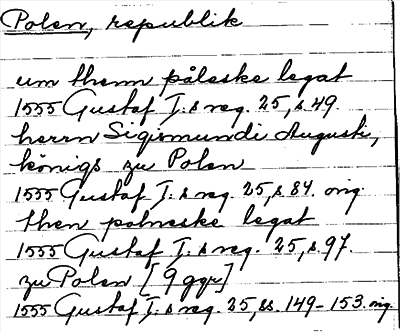 Polen, republik
um them påleske legat
1555 Gustaf I:s reg. 25, s. 49.
herrn Sigismundi Augusti,
königs zu Polen
1555 Gustaf I:s reg. 25, s. 84. orig
then polneske legat
1555 Gustaf I:s reg. 25, s. 97.
zu Polen [9 ggr]
1555 Gustaf I:s reg. 25, ss. 149-153. orig.